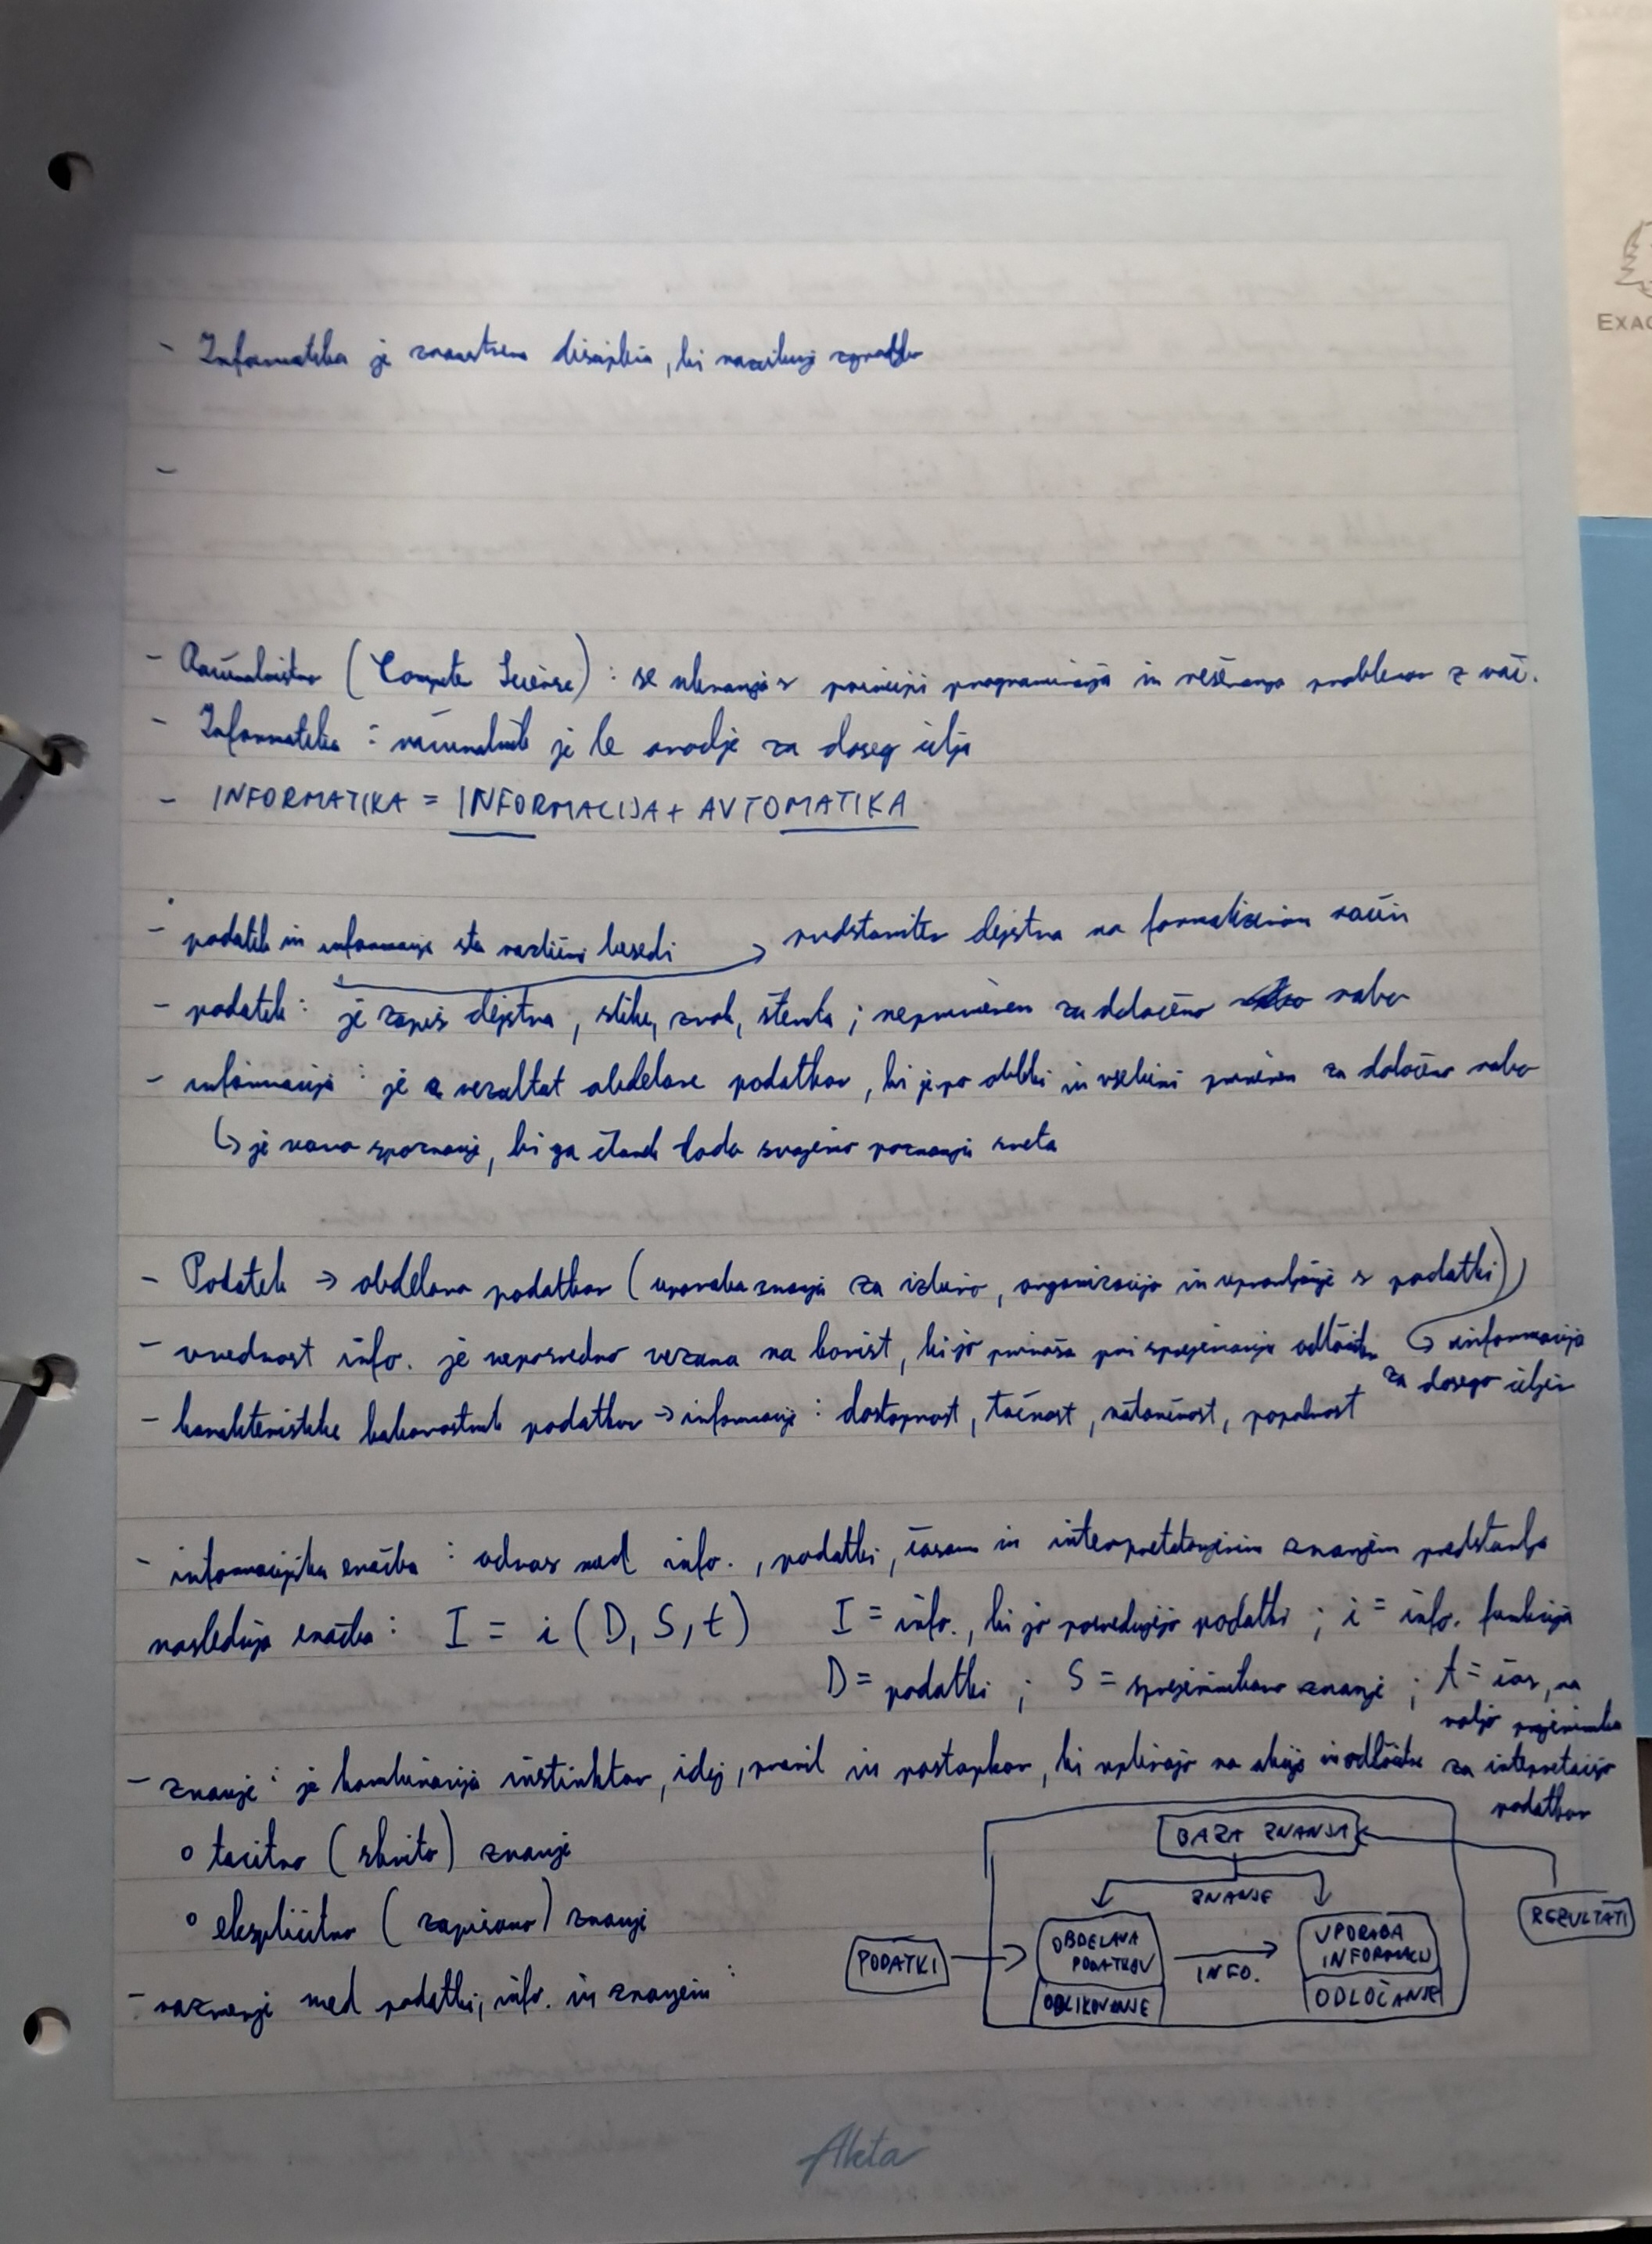 - Informatika je znanstvena disciplina, ki raziskuje zgradbo
-
- Računalništvo (Computer Science) : se ukvarja s principi programiranja in reševanja problemov z rač.
- Informatika : računalnik je le orodje za doseg cilja
- INFORMATIKA = INFORMACIJA + AVTOMATIKA
- podatek in informacija sta različni besedi → predstavitev dejstva na formaliziran način
- podatek : je zapis dejstva, slike, zvok, števila ; neprimeren za določeno rabo
- informacija : je rezultat obdelave podatkov, ki je po obliki in vsebini primeren za določeno rabo
↳ je novo spoznanje, ki ga človek doda svojemu poznanju sveta
- Podatek → obdelava podatkov (uporaba znanja za izbiro, organizacijo in upravljanje s podatki)
↳ informacija
- vrednost info. je neposredno vezana na korist, ki jo prinaša pri sprejemanju odločitev
za dosego ciljev
- karakteristike kakovostnih podatkov → informacije : dostopnost, točnost, natančnost, popolnost
- informacijska enačba : odnos med info., podatki, časom in interpretacijskim znanjem predstavlja
naslednja enačba : I = i (D, S, t) I = info., ki jo posredujejo podatki ; i = info. funkcija
D = podatki ; S = sprejemnikovo znanje ; t = čas, na
voljo prejemniku
za interpretacijo
podatkov
- znanje : je kombinacija instinktov, idej, pravil in postopkov, ki vplivajo na akcije in odločitve
o tacitno (skrito) znanje
o eksplicitno (zapisano) znanje
- razmerje med podatki, info. in znanjem :
BAZA ZNANJA
ZNANJE
REZULTATI
PODATKI
OBDELAVA
PODATKOV
OBLIKOVANJE
INFO.
UPORABA
INFORMACIJ
ODLOČANJE
Aleta
EXAC